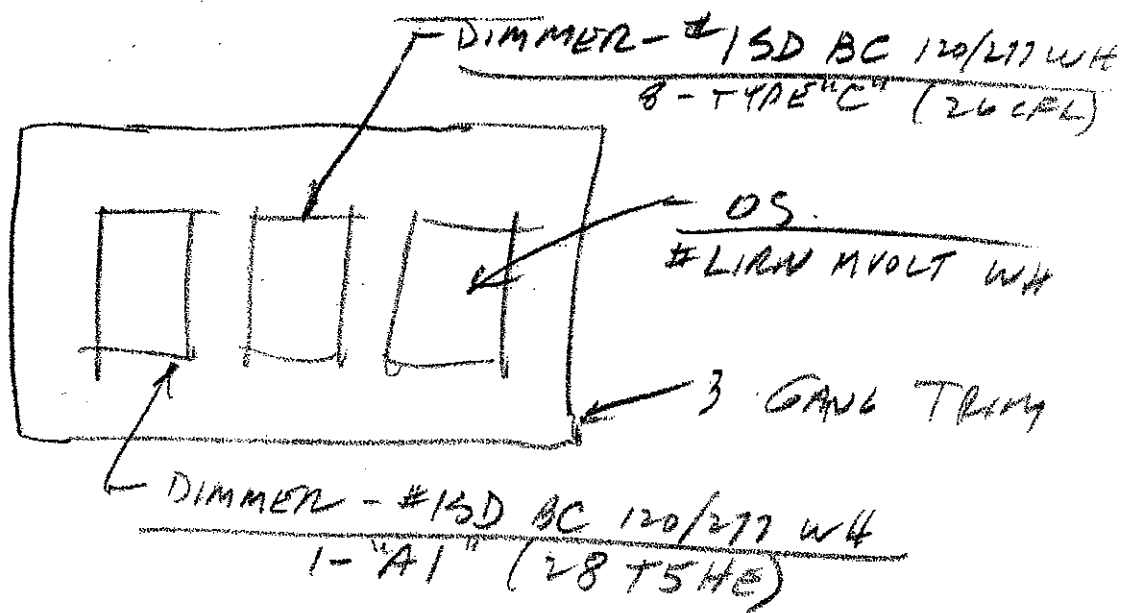 DIMMER - #ISD BC 120/277 WH
8 - TYPE "C" (26 CFL)
OS.
#LIRW MVOLT WH
3 GANG TRIM
DIMMER - #ISD BC 120/277 WH
1 - "A1" (28 T5HE)